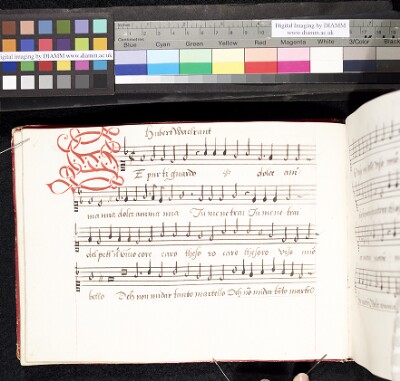 Digital Imaging by DIAMM
www.diamm.ac.uk
Centimetres
Blue Cyan Green Yellow Red Magenta White 3/Color Black
Digital Imaging by DIAMM
www.diamm.ac.uk
Hubert Waelrant
E pur ti guardo dolce ani
ma mia dolce anima mia Tu mene trai Tu mene trai
del pett' il vivo core caro theso ro caro thesoro Viso mio
bello Deh non mi dar tanto martello Deh nō mi dar tāto martello